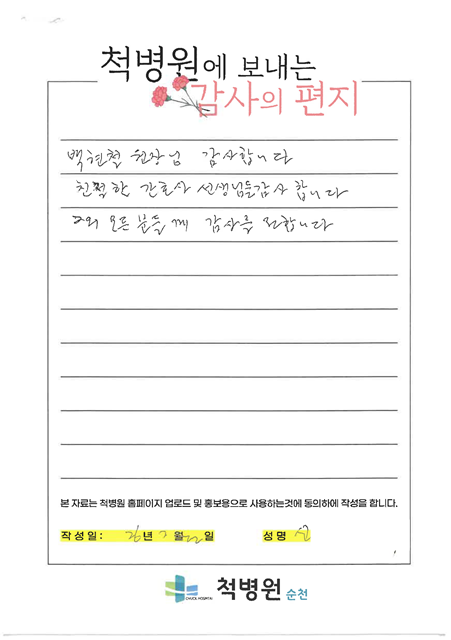 척병원에 보내는
감사의 편지
백현철 원장님 감사합니다
친절한 간호사 선생님들 감사합니다
그외 모든 분들께 감사를 전합니다
본 자료는 척병원 홈페이지 업로드 및 홍보용으로 사용하는것에 동의하에 작성을 합니다.
작성일: 26년 월 22일 성명
CHUCK HOSPITAL
척병원 순천